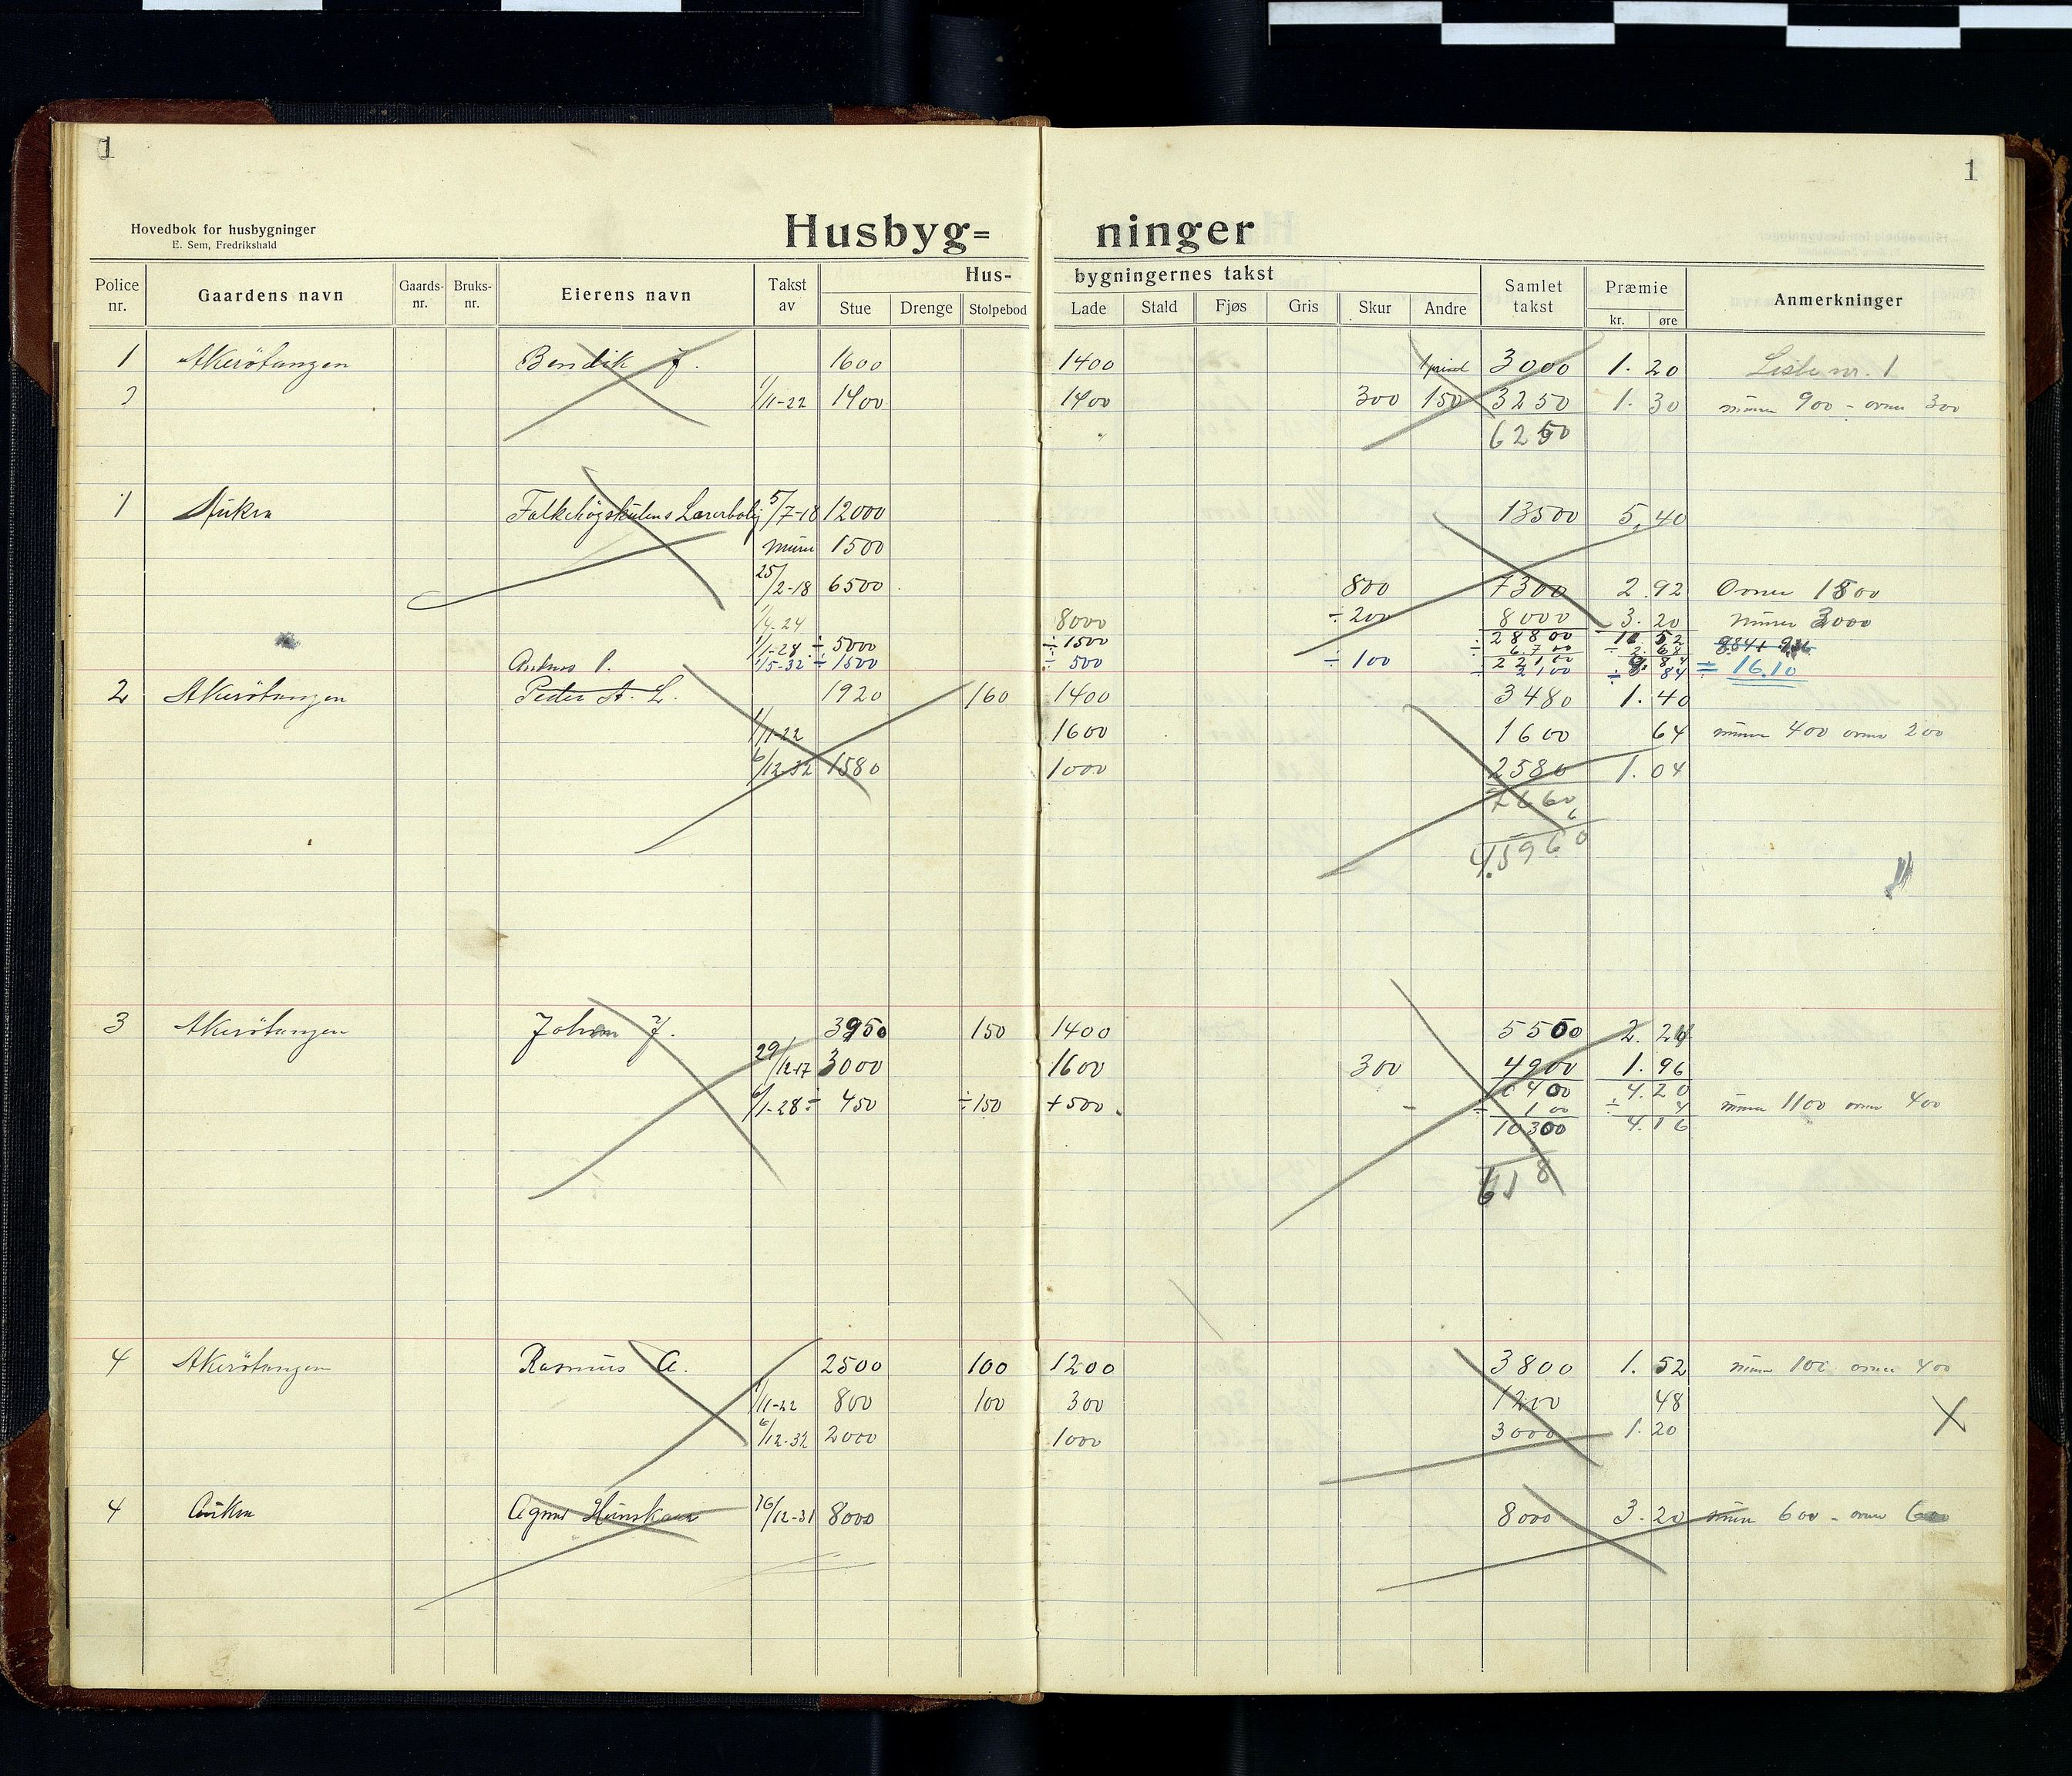 1 1
Hovedbok for husbygninger
E. Sem, Fredrikshald
Husbyg= ninger
Police nr. Gaardens navn Gaards- nr. Bruks- nr. Eierens navn Takst av Hus- bygningernes takst Samlet takst Præmie Anmerkninger
Stue Drenge Stolpebod Lade Stald Fjøs Gris Skur Andre kr. øre
1 Akerötangen Bendik J. 1600 1400 3000 1. 20 Liste nr. 1
2 1/11-22 1400 1400 300 150 3250 1. 30 murer 900 - ovner 300
6250
1 Aukra Folkehögskulens Lærerbolig 5/7-18 12000 13500 5,40
murer 1500
25/2-18 6500 800 7300 2.92 Ovner 1500
1/4-24 8000 ÷ 200 8000 3.20 murer 3000
1/1-28 ÷ 5000 ÷ 1500 28800
Anders P. 1/5-32 ÷ 1500 ÷ 500 ÷ 100 22100 = 16.10
÷ 2100
2 Akerötangen Peder A. L. 1920 160 1400 3480 1.40
1/11-22 1600 1600 64 murer 400 ovner 200
6/12-32 1580 1000 2580 1.04
7660
45960
3 Akerötangen Johan J. 3950 150 1400 5500 2.24
29/12-17 3000 1600 300 4900 1.96
6/1-28 ÷ 450 ÷150 +500 10400 4.20 murer 1100 ovner 400
÷ 100 ÷ 4
10300 4.16
618
4 Akerötangen Rasmus A. 2500 100 1200 3800 1.52 murer 100 ovner 400
1/11-22 800 100 300 1200 48
6/12-32 2000 1000 3000 1.20
4 Aukra Agnes 16/12-31 8000 8000 3.20 murer 600 - ovner